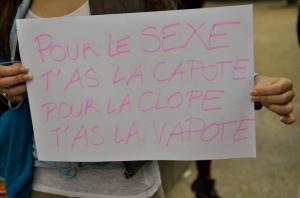 POUR LE SEXE
T'AS LA CAPOTE
POUR LA CLOPE
T'AS LA VAPOTE